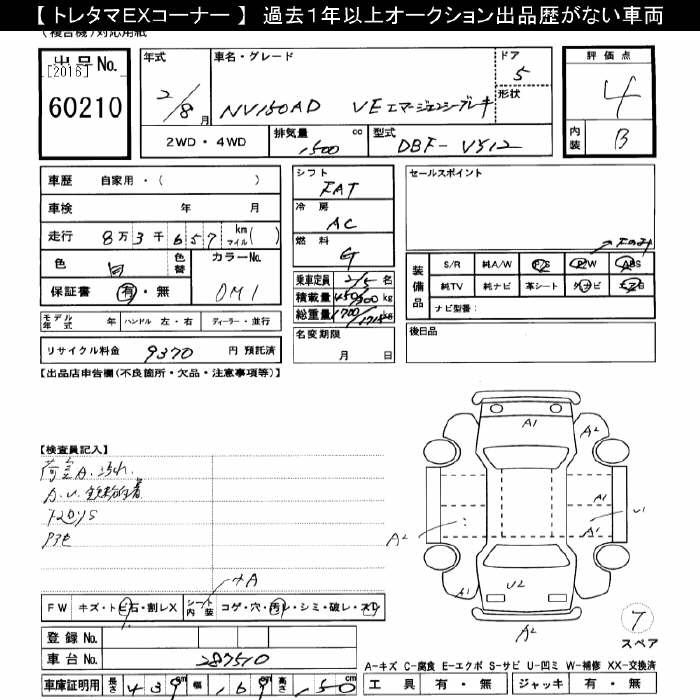 【 トレタマEXコーナー 】 過去1年以上オークション出品歴がない車両
(複合機)対応用紙
出品No.
[2016]
60210
年式
2/8月
車名・グレード
NV150AD VEエマージェンシーブレーキ
ドア
5
形状
2WD・4WD
排気量
1500 cc
型式
DBF-VY12
評価点
4
内装
B
車歴 自家用・( )
車検 年 月
走行 8万3千657 km マイル( )
色 白
色替
カラーNo.
保証書 有・無
モデル年式 年
ハンドル 左・右
ディーラー・並行
リサイクル料金 9370 円 預託済
シフト
FAT
冷房
AC
燃料
G
乗車定員 2/5名
積載量 450/300kg
総重量
名変期限
月 日
セールスポイント
装備品
S/R 純A/W P/S P/W ABS
純TV 純ナビ 革シート 外ナビ
ナビ型番:
後日品
【出品店申告欄(不良箇所・欠品・注意事項等)】
【検査員記入】
荷室A.汚れ
FW キズ・トビ石・割レX
シート内装 コゲ・穴・汚レ・シミ・破レ・スレ
登録No.
車台No. 287510
車庫証明用 長さ 439cm 幅 169cm 高さ 150cm
A1
A2
A1
A2
A1
U1
A1
A1
U2
A2
7
スペア
A-キズ C-腐食 E-エクボ S-サビ U-凹ミ W-補修 XX-交換済
工具 有・無 ジャッキ 有・無